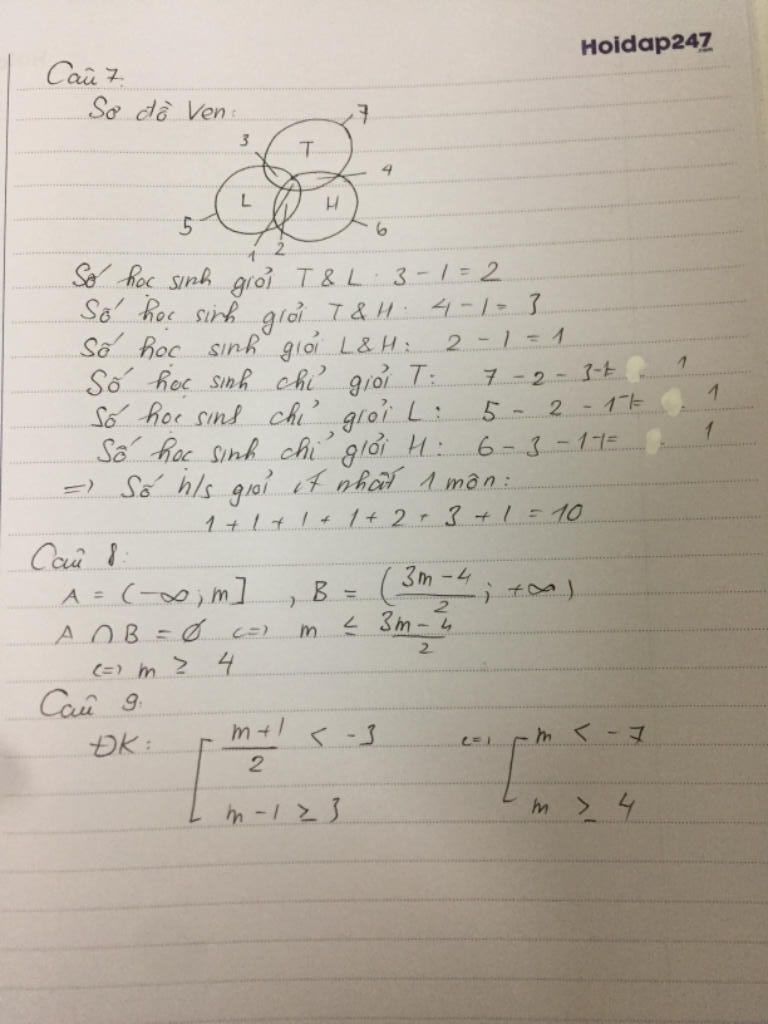 Hoidap247
.com
Câu 7.
Sơ đồ Ven:
7
3
T
4
L
H
5
6
1 2
Số học sinh giỏi T & L: 3 - 1 = 2
Số học sinh giỏi T & H: 4 - 1 = 3
Số học sinh giỏi L & H: 2 - 1 = 1
Số học sinh chỉ giỏi T: 7 - 2 - 3 - 1 = 1
Số học sinh chỉ giỏi L: 5 - 2 - 1 - 1 = 1
Số học sinh chỉ giỏi H: 6 - 3 - 1 - 1 = 1
=> Số h/s giỏi ít nhất 1 môn:
1 + 1 + 1 + 1 + 2 + 3 + 1 = 10
Câu 8:
A = (-∞; m] , B = (\frac{3m-4}{2}; +∞)
A ∩ B = ∅ <=> m ≤ \frac{3m-4}{2}
<=> m ≥ 4
Câu 9:
ĐK: [ \frac{m+1}{2} < -3 <=> [ m < -7
m - 1 ≥ 3 m ≥ 4